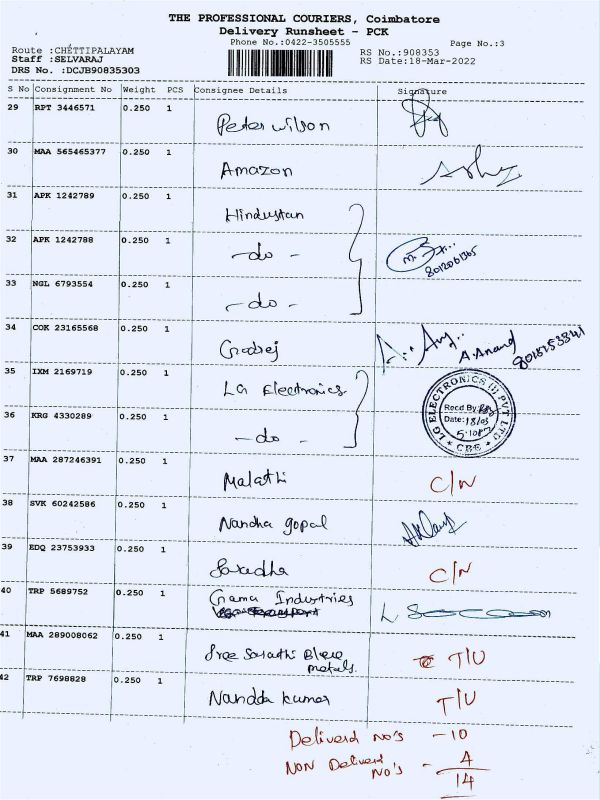 THE PROFESSIONAL COURIERS, Coimbatore
Delivery Runsheet - PCK
Phone No.:0422-3505555
Page No.:3
Route :CHÉTTIPALAYAM
Staff :SELVARAJ
DRS No. :DCJB90835303
RS No.:908353
RS Date:18-Mar-2022
S No Consignment No Weight PCS Consignee Details Signature
29 RPT 3446571 0.250 1 Peter wilson
30 MAA 565465377 0.250 1 Amazon
31 APK 1242789 0.250 1 Hindustan
32 APK 1242788 0.250 1 -do-
8012061365
33 NGL 6793554 0.250 1 -do-
34 COK 23165568 0.250 1 Godrej
A.Anand
8015153841
35 IXM 2169719 0.250 1 LG Electronics
LG ELECTRONICS (I) PVT LTD
Recd By:
Date: 18/03
5.10
CBE
36 KRG 4330289 0.250 1 -do-
37 MAA 287246391 0.250 1 Malathi C/N
38 SVK 60242586 0.250 1 Nandha gopal
39 EDQ 23753933 0.250 1 C/N
40 TRP 5689752 0.250 1 Gama Industries
41 MAA 289008062 0.250 1 Sree Sarathi Blue metals. T/U
42 TRP 7698828 0.250 1 Nandda kumar T/U
Deliverd No's - 10
NON Deliverd No's - 4
14